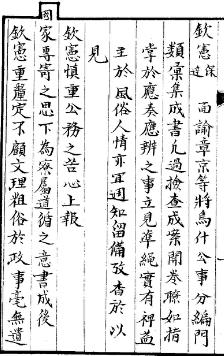 欽憲保 面諭章京等將烏什公事分編門
類彙集成書凡過撿查成案開卷瞭如指
掌於應奏應辦之事立見準繩實有裨益
至於風俗人情亦宜週知留備攷查於以
見
欽憲慎重公務之苦心上報
國家專寄之恩下為寮屬遵循之意書成後
欽憲重釐定不顧文理粗俗於政事毫無遺